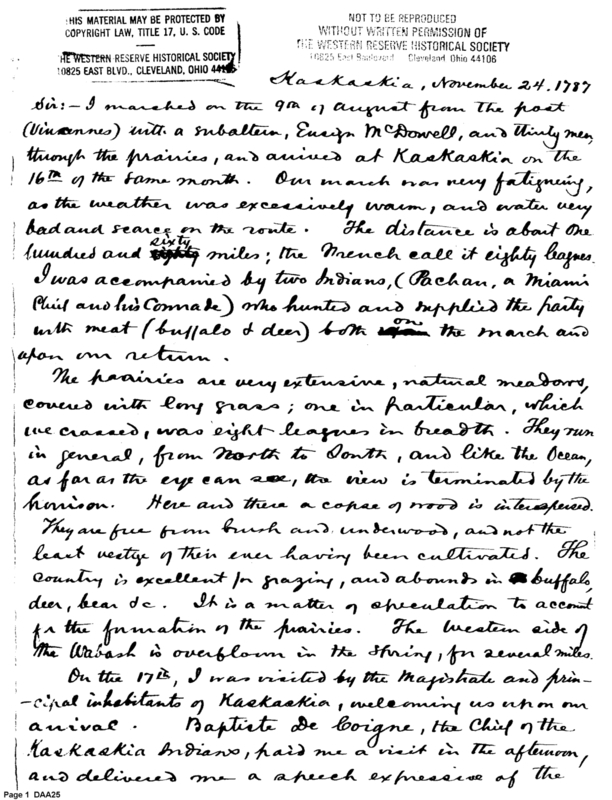 THIS MATERIAL MAY BE PROTECTED BY
COPYRIGHT LAW, TITLE 17, U. S. CODE
THE WESTERN RESERVE HISTORICAL SOCIETY
10825 EAST BLVD., CLEVELAND, OHIO 44106
NOT TO BE REPRODUCED
WITHOUT WRITTEN PERMISSION OF
THE WESTERN RESERVE HISTORICAL SOCIETY
10825 East Boulevard Cleveland, Ohio 44106
Kaskaskia, November 24, 1787
Sir:- I marched on the 9th of August from the post
(Vincennes) with a subaltern, Ensign McDowell, and thirty men,
through the prairies, and arrived at Kaskaskia on the
16th of the same month. Our march was very fatigueing,
as the weather was excessively warm, and water very
bad and scarce on the route. The distance is about One
hundred and sixty miles; the French call it eighty leagues.
I was accompanied by two Indians, (Pachan, a Miami
Chief and his Comrade) who hunted and supplied the party
with meat (buffalo & deer) both on the march and
upon our return.
The prairies are very extensive, natural meadows,
covered with long grass; one in particular, which
we crossed, was eight leagues in breadth. They run
in general, from North to South, and like the Ocean,
as far as the eye can see, the view is terminated by the
horrison. Here and there a copse of wood is interspersed.
They are free from brush and underwood, and not the
least vestige of their ever having been cultivated. The
country is excellent for grazing, and abounds in buffalo,
deer, bear &c. It is a matter of speculation to account
for the formation of the prairies. The western side of
the Wabash is overflown in the Spring, for several miles.
On the 17th, I was visited by the Magistrate and prin-
-cipal inhabitants of Kaskaskia, welcoming us upon our
arrival. Baptiste De Coigne, the Chief of the
Kaskaskia Indians, paid me a visit in the afternoon,
and delivered me a speech expressive of the
Page 1 DAA25